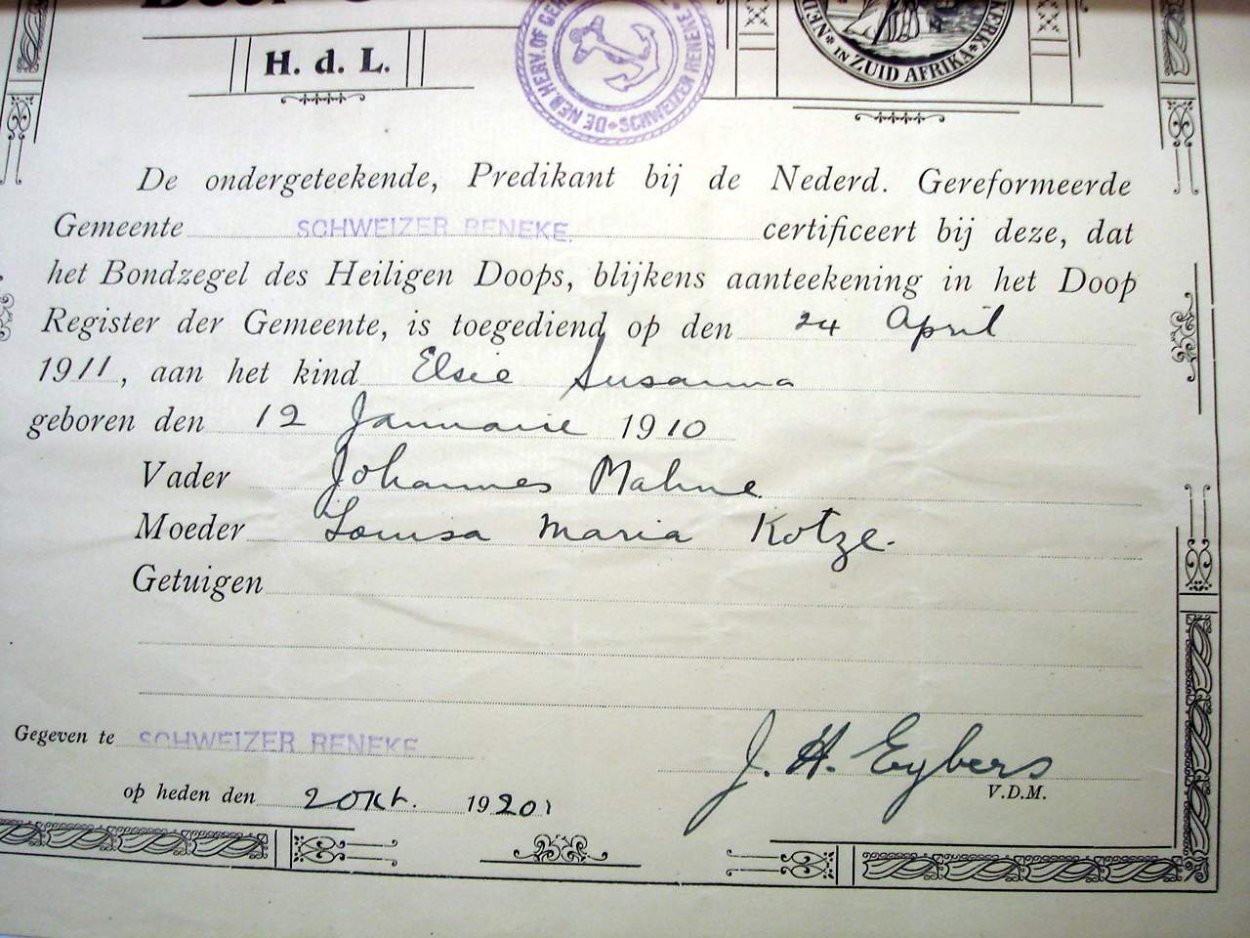 H. d. L.
DE NED HERV. OF GER
SCHWEIZER RENEKE
NED
KERK
IN ZUID AFRIKA
De ondergeteekende, Predikant bij de Nederd. Gereformeerde
Gemeente SCHWEIZER RENEKE. certificeert bij deze, dat
het Bondzegel des Heiligen Doops, blijkens aanteekening in het Doop
Register der Gemeente, is toegediend op den 24 April
1911, aan het kind Elsie Susanna
geboren den 12 Januarie 1910
Vader Johannes Mahne
Moeder Louisa Maria Kotze.
Getuigen
Gegeven te SCHWEIZER RENEKE
J. H. Eybers
op heden den 2 Okt. 1920
V.D.M.